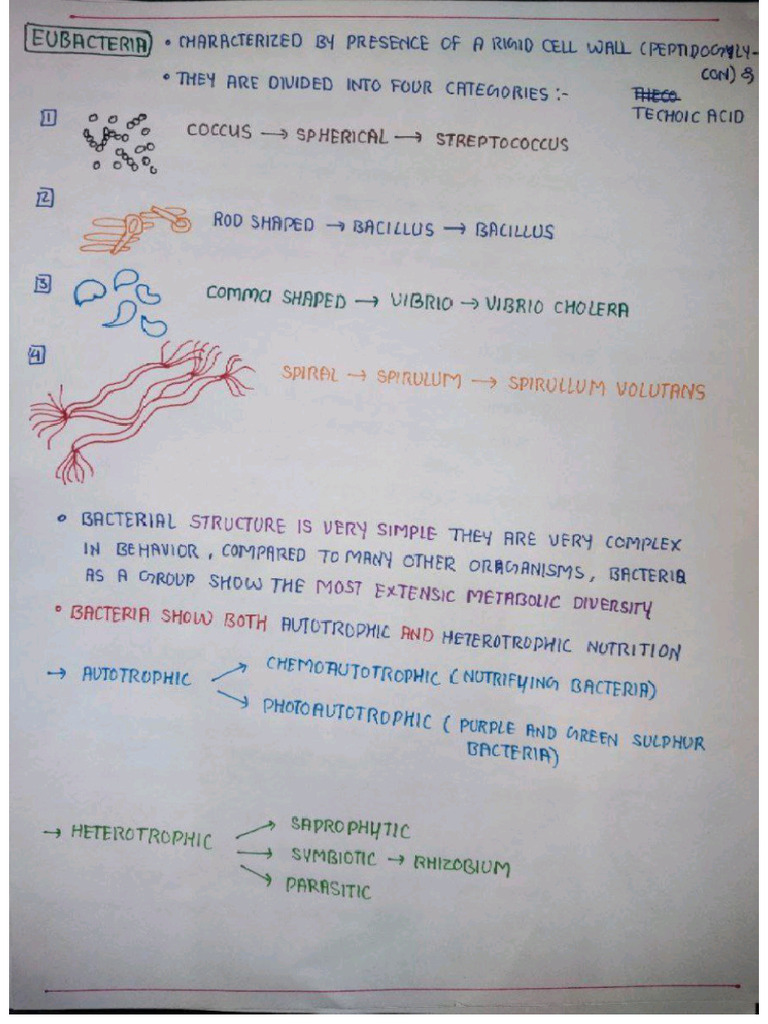 EUBACTERIA • CHARACTERIZED BY PRESENCE OF A RIGID CELL WALL (PEPTIDOGLY-
CON) &
• THEY ARE DIVIDED INTO FOUR CATEGORIES :-
THECO
TECHOIC ACID
1 COCCUS → SPHERICAL → STREPTOCOCCUS
2 ROD SHAPED → BACILLUS → BACILLUS
3 COMMA SHAPED → VIBRIO → VIBRIO CHOLERA
4 SPIRAL → SPIRULUM → SPIRULLUM VOLUTANS
• BACTERIAL STRUCTURE IS VERY SIMPLE THEY ARE VERY COMPLEX
IN BEHAVIOR, COMPARED TO MANY OTHER ORAGANISMS, BACTERIA
AS A GROUP SHOW THE MOST EXTENSIC METABOLIC DIVERSITY
• BACTERIA SHOW BOTH AUTOTROPHIC AND HETEROTROPHIC NUTRITION
→ AUTOTROPHIC → CHEMOAUTOTROPHIC (NUTRIFYING BACTERIA)
→ PHOTOAUTOTROPHIC ( PURPLE AND GREEN SULPHUR
BACTERIA)
→ HETEROTROPHIC → SAPROPHYTIC
→ SYMBIOTIC → RHIZOBIUM
→ PARASITIC